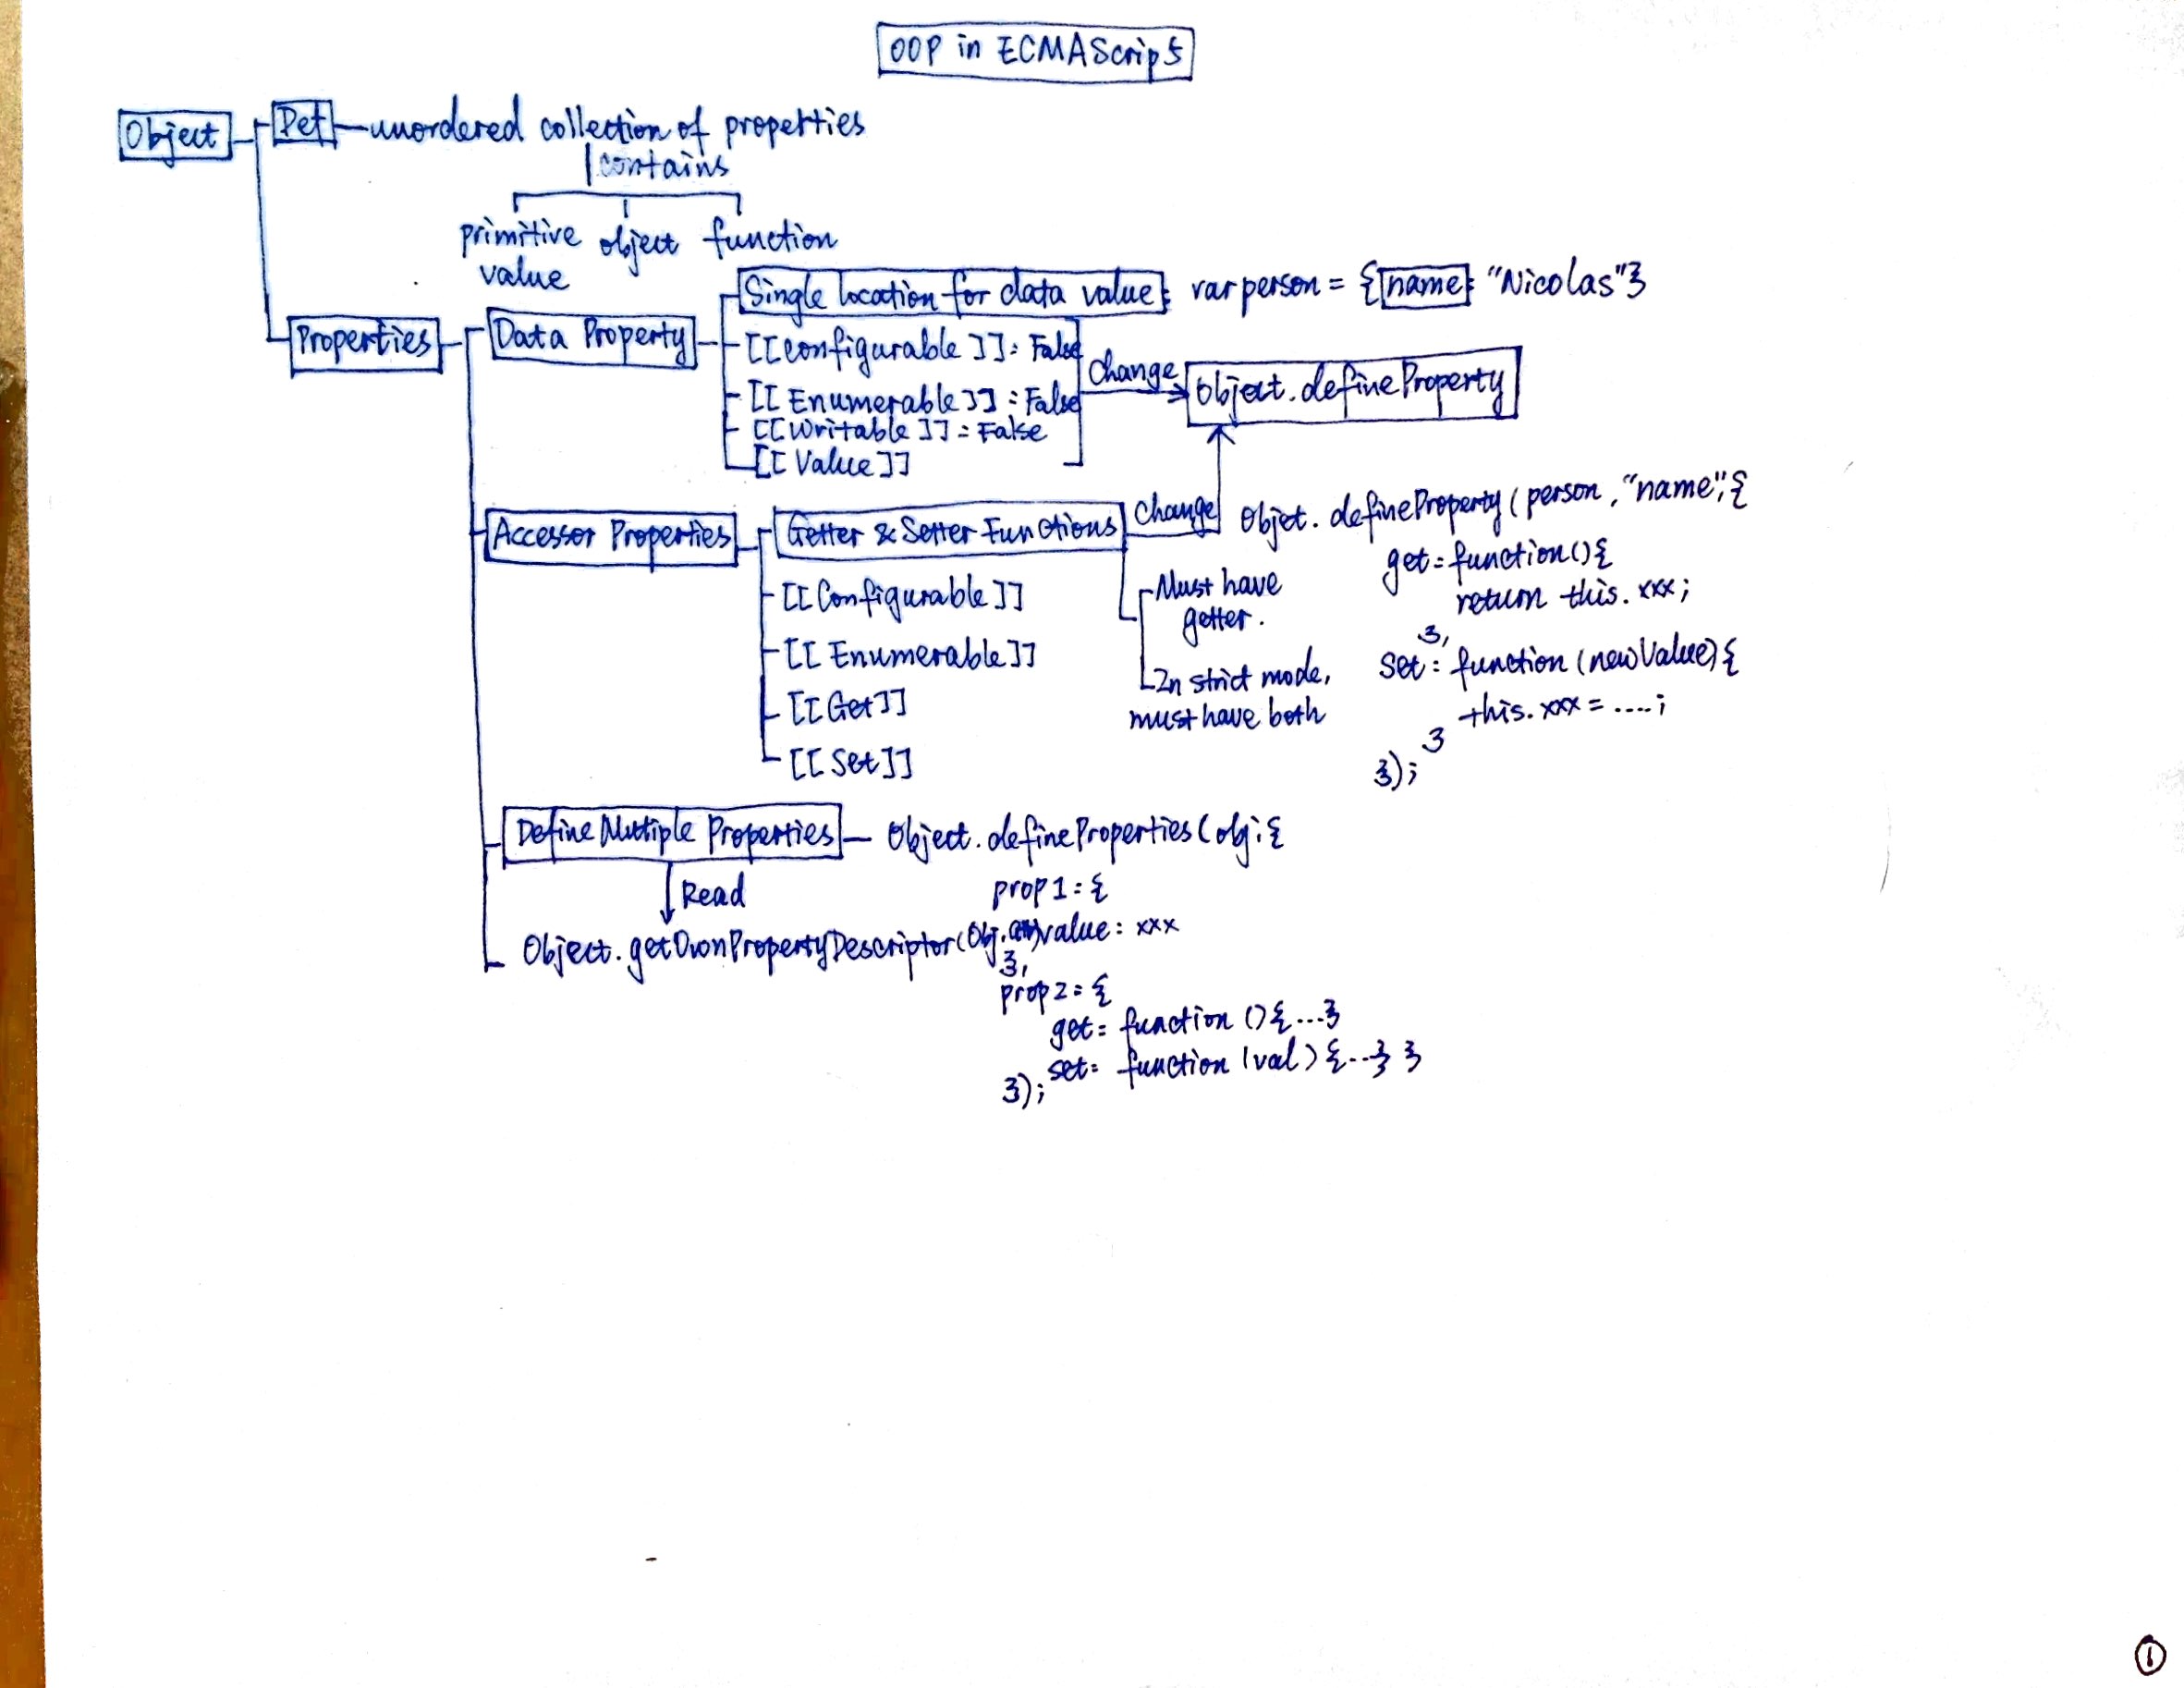 OOP in ECMAScrip5
Object
Def
unordered collection of properties
contains
primitive object function
value
Properties
Data Property
Single location for data value: var person = {name: "Nicolas"}
[[Configurable]]: False
[[Enumerable]]: False
[[Writable]]: False
[[Value]]
Change
Object.defineProperty
Accessor Properties
Getter & Setter Functions
Change
[[Configurable]]
[[Enumerable]]
[[Get]]
[[Set]]
Must have
getter.
In strict mode,
must have both
Objet.defineProperty(person, "name", {
get: function(){
return this.xxx;
},
set: function(newValue){
this.xxx = ....;
}
});
Define Multiple Properties
Object.defineProperties(obj; {
Read
prop1: {
value: xxx
Object.getOwnPropertyDescriptor(Obj,
},
prop2: {
get: function (){...}
set: function (val) {...} }
});
1